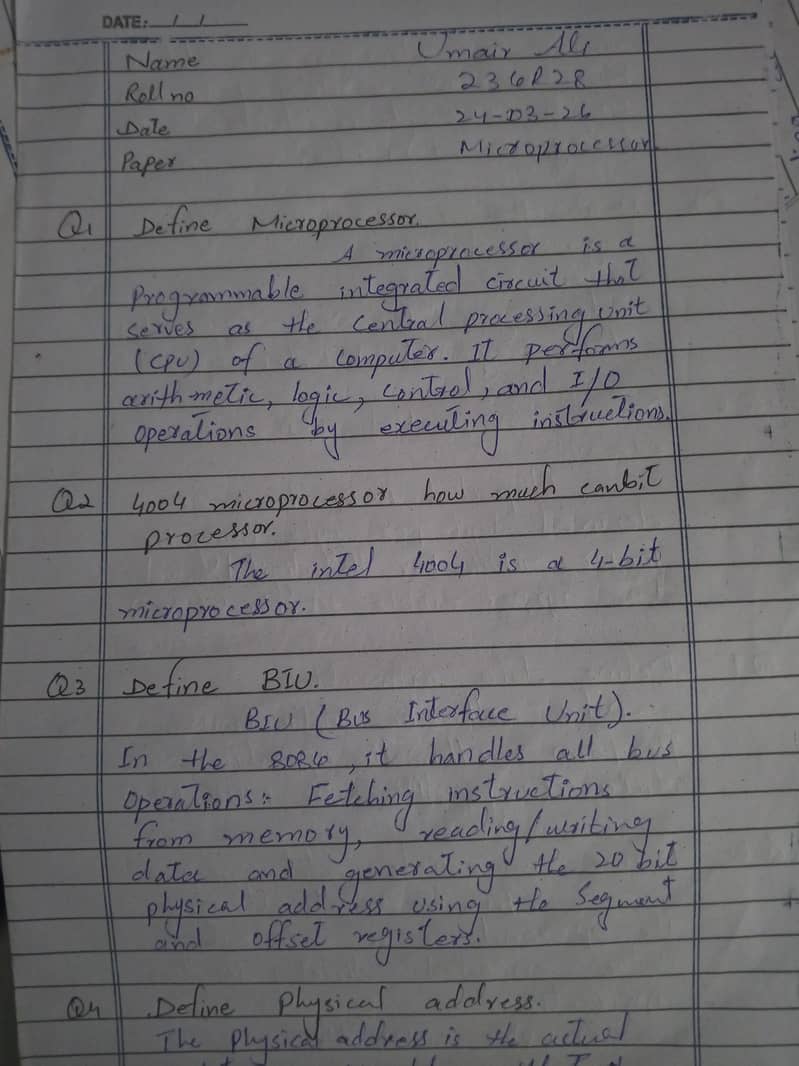 DATE: / /
Name Umair Ali
Roll no
Date 24-03-26
Paper Microprocessor
Q1 Define Microprocessor.
A microprocessor is a
Programmable integrated circuit that
serves as the Central processing Unit
(CPU) of a Computer. IT performs
arithmetic, logic, Control, and I/O
Operations by executing instructions.
Q2 4004 microprocessor how much canbit
processor.
The intel 4004 is a 4-bit
microprocessor.
Q3 Define BIU.
BIU (Bus Interface Unit).
In the 8086, it handles all bus
Operations: Fetching instructions
from memory, reading/writing
data and generating the 20 bit
physical address using the Segment
and offset registers.
Q4 Define Physical address.
The Physical address is the actual